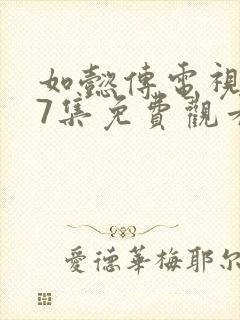 如懿傳電視
7集免費觀看
愛德華梅耶尔